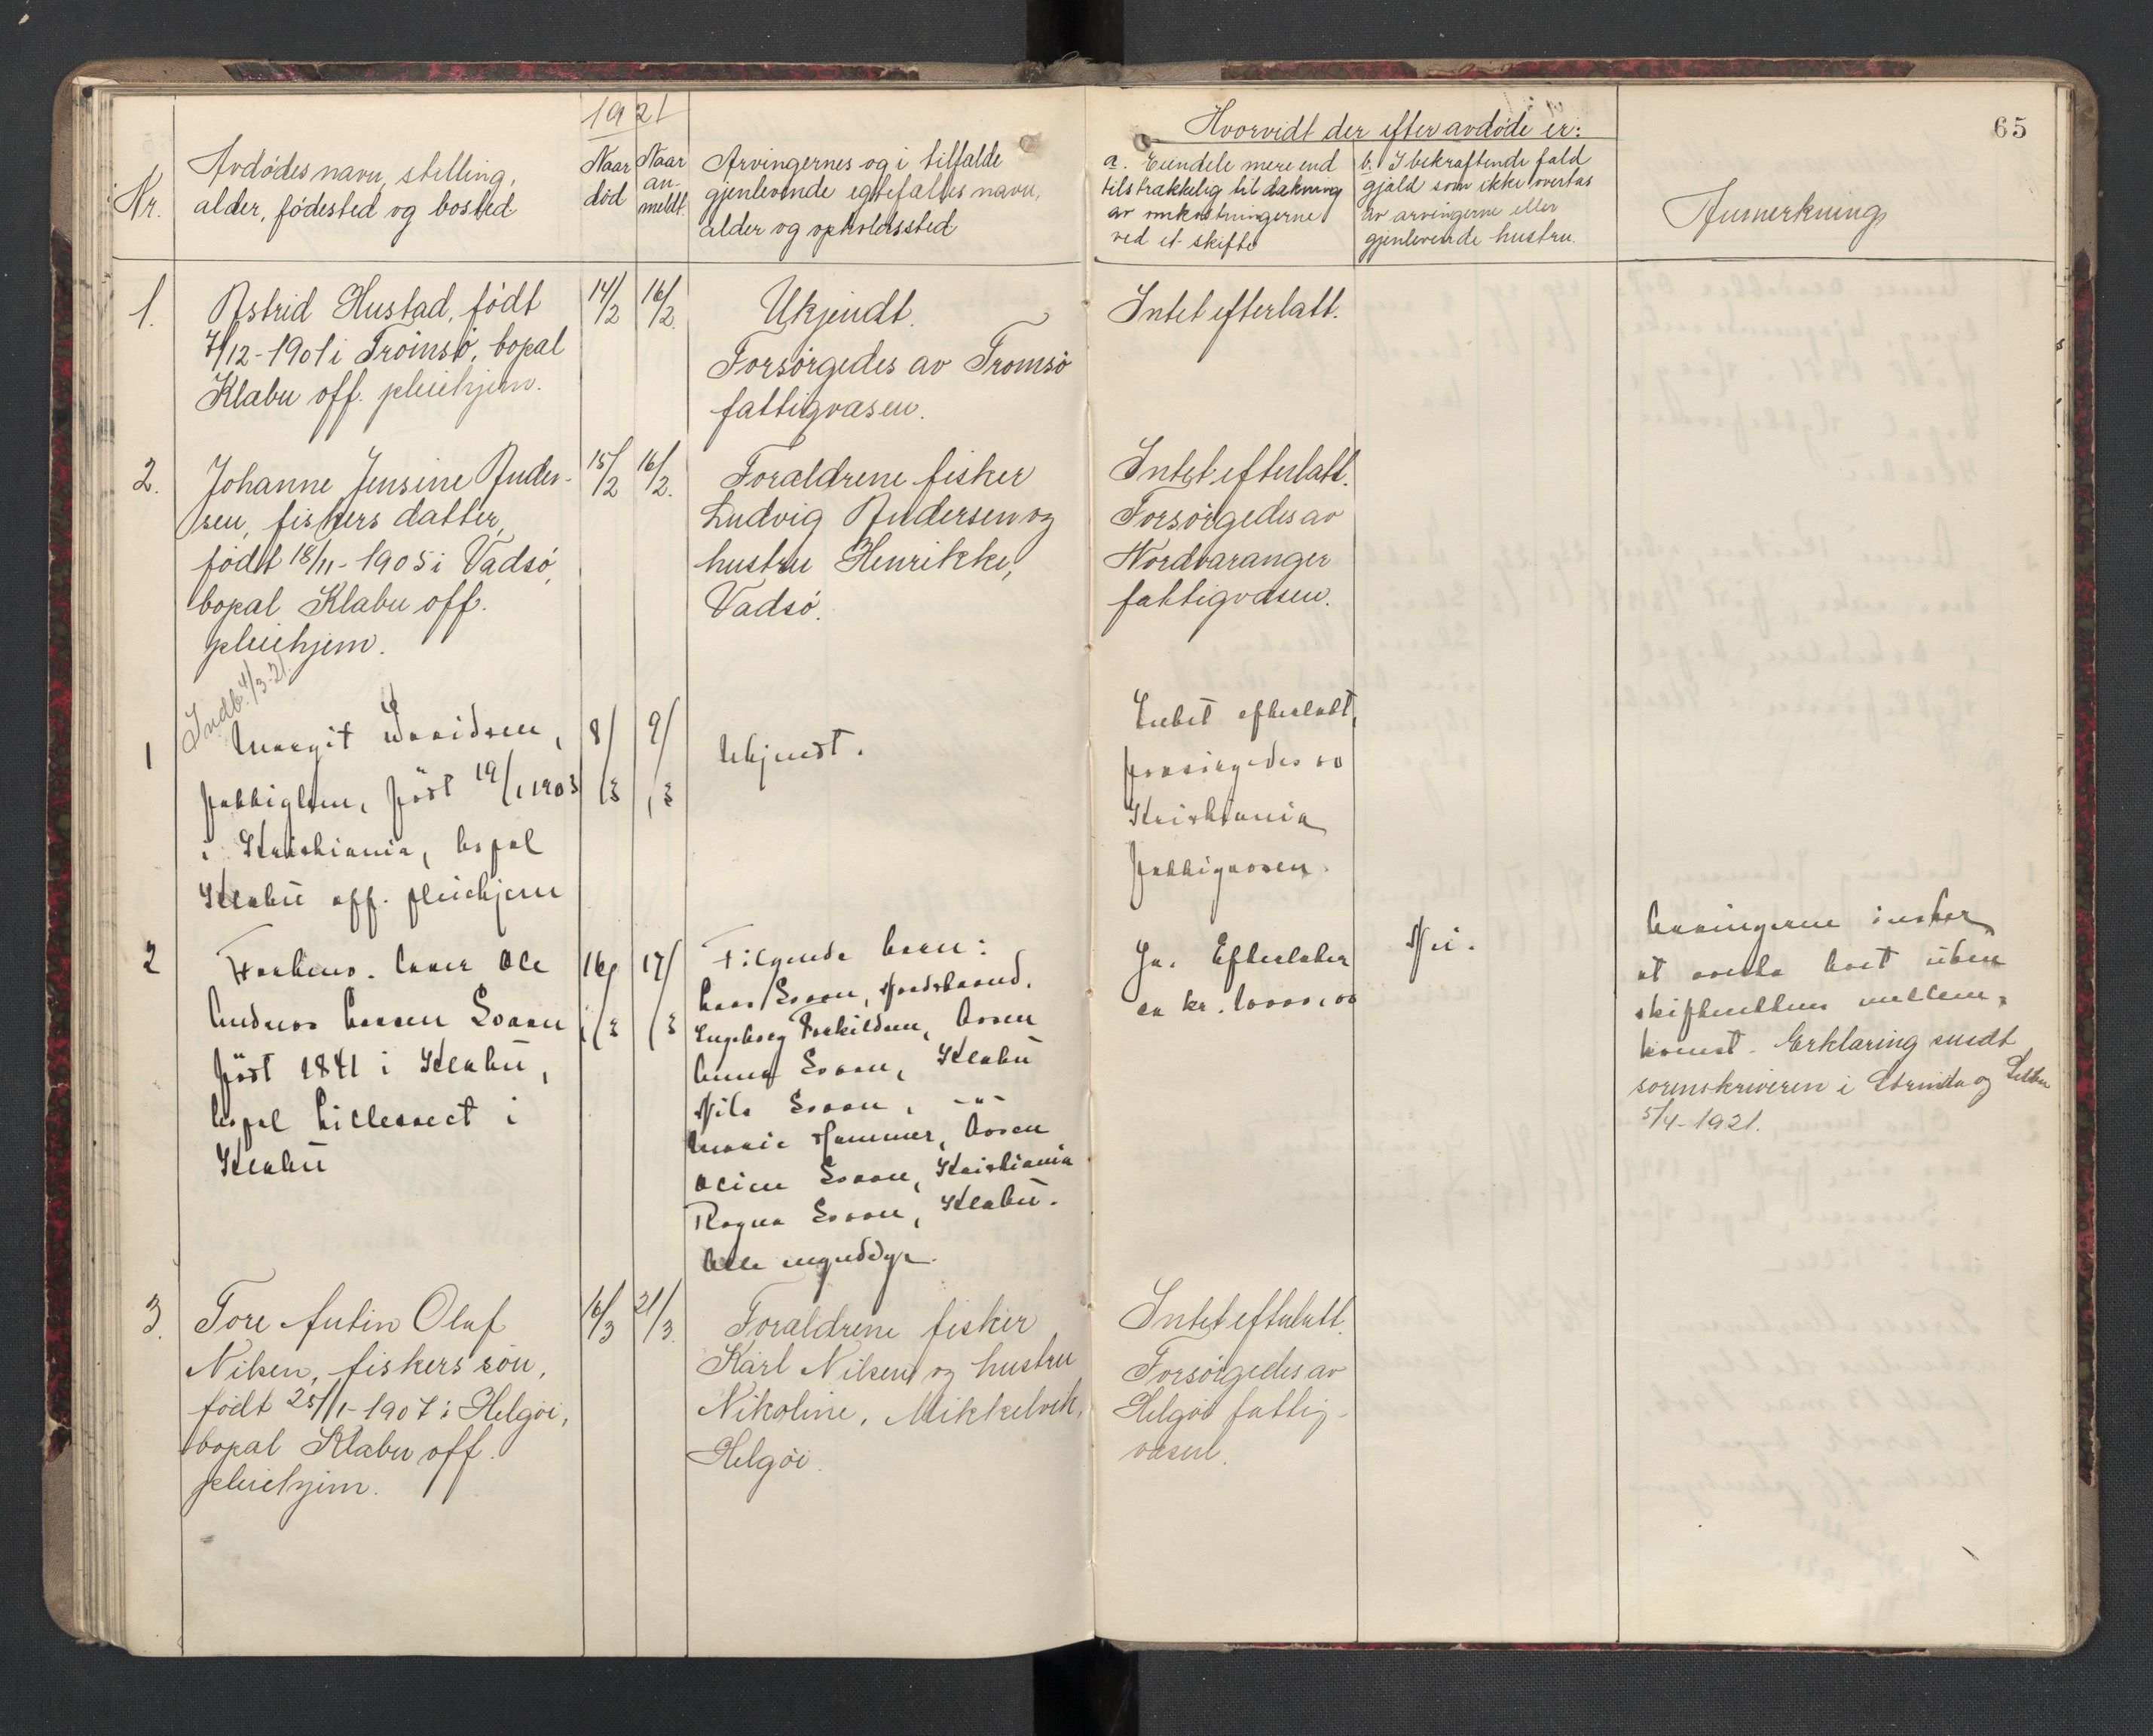 65
1921
Nr.
Avdødes navn, stilling,
alder, fødested og bosted
Naar
død
Naar
an-
meldt.
Arvingernes og i tilfælde
gjenlevende egtefælles navn,
alder og opholdssted
Hvorvidt der efter avdøde er:
a. Eiendele mere end
tilstrækkelig til dækning
av omkostningerne
ved et skifte
b. I bekræftende fald
gjæld som ikke overtas
av arvingerne eller
gjenlevende hustru.
Anmerkning
1.
Astrid Hustad, født
7/12-1901 i Tromsø, bopæl
Klæbu off. pleiehjem.
14/2
16/2.
Ukjendt.
Forsørgedes av Tromsø
fattigvæsen.
Intet efterlatt.
2.
Johanne Jensine Ander-
sen, fiskers datter,
født 18/11-1905 i Vadsø,
bopæl Klæbu off.
pleiehjem.
15/2
16/2.
Forældrene fisker
Ludvig Andersen og
hustru Henrikke,
Vadsø.
Intet efterlatt.
Forsørgedes av
Nordvaranger
fattigvæsen.
Indb. 4/3-21.
1
Margit Davidsen,
fattiglem, født 19/1 1903
i Kristiania, bopæl
Klæbu off. pleiehjem
8/3
9/3
Ukjendt.
Intet efterlatt,
forsørgedes av
Kristiania
fattigvæsen.
2
Forhens. Ole
Andreas Larsen Svaan
født 1841 i Klæbu,
bopæl Lillesvect i
Klæbu
16/3
17/3
Følgende barn:
Lars Svaan, Nordstrand.
Ingeborg Torkildsen, Aasen
Anna Svaan, Klæbu
Nils Svaan, -"-
Marie Hammer, Aasen
Oline Svaan, Kristiania
Ragna Svaan, Klæbu.
Alle myndige.
Ja. Efterlater
ca kr. 10000,00
Nei.
Arvingerne ønsker
at overta boet uten
skifterettens mellem-
komst. Erklæring sendt
sorenskriveren i Strinda og Selbu
5/4-1921.
3.
Tore Antin Olaf
Nilsen, fiskers søn,
født 25/1-1907 i Helgøi,
bopæl Klæbu off.
pleiehjem.
16/3
21/3.
Forældrene fisker
Karl Nilsen og hustru
Nikoline, Mikkelvik,
Helgøi.
Intet efterlatt.
Forsørgedes av
Helgøi fattig-
væsen.